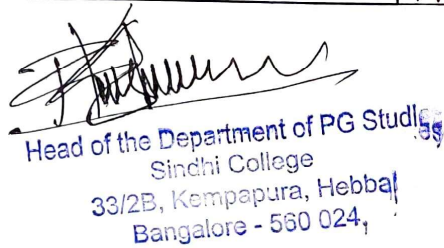 Head of the Department of PG Studies
Sindhi College
33/2B, Kempapura, Hebbal
Bangalore - 560 024,